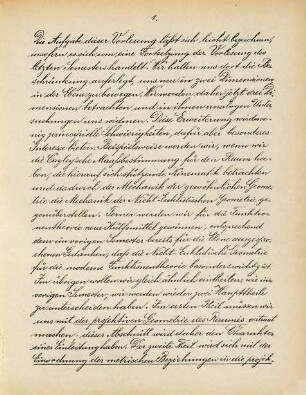 1.
Die Aufgabe dieser Vorlesung läßt sich leicht bezeichnen,
insofern es sich um eine Fortsetzung der Vorlesung des
letzten Semesters handelt. Wir hatten uns dort die Be-
schränkung auferlegt, uns nur in zwei Dimensionen,
in der Ebene zu bewegen. Wir werden daher jetzt drei Di-
mensionen betrachten und ihnen analogen Unter-
suchungen uns widmen. Diese Erweiterung wird wenig
prinzipielle Schwierigkeiten, dafür aber besonderes
Interesse bieten. Beispielsweise werden wir, wenn wir
die Cayley'sche Maaßbestimmung für den Raum ha-
ben, die hierauf sich stützende Kinematik betrachten
und dadurch der Mechanik der gewöhnlichen Geome-
trie die Mechanik der Nicht-Euklidischen Geometrie ge-
genüberstellen. Ferner werden wir für die Funktion-
entheorie neue Hülfsmittel gewinnen, entsprechend
dem im vorigen Semester bereits für die Ebene ausgespro-
chenen Gedanken, daß die Nicht-Euklidische Geometrie
für die moderne Funktionentheorie besonders wichtig ist.
Im übrigen wollen wir ganz ähnlich eintheilen, wie im
vorigen Semester, wir werden wieder zwei Hauptteile
zu unterscheiden haben. Im ersten Theil müssen wir
uns mit der projektiven Geometrie des Raumes vertraut
machen; dieser Abschnitt wird daher den Charakter
einer Einleitung haben. Der zweite Theil wird sich mit der
Einordnung der metrischen Beziehungen in die projek-